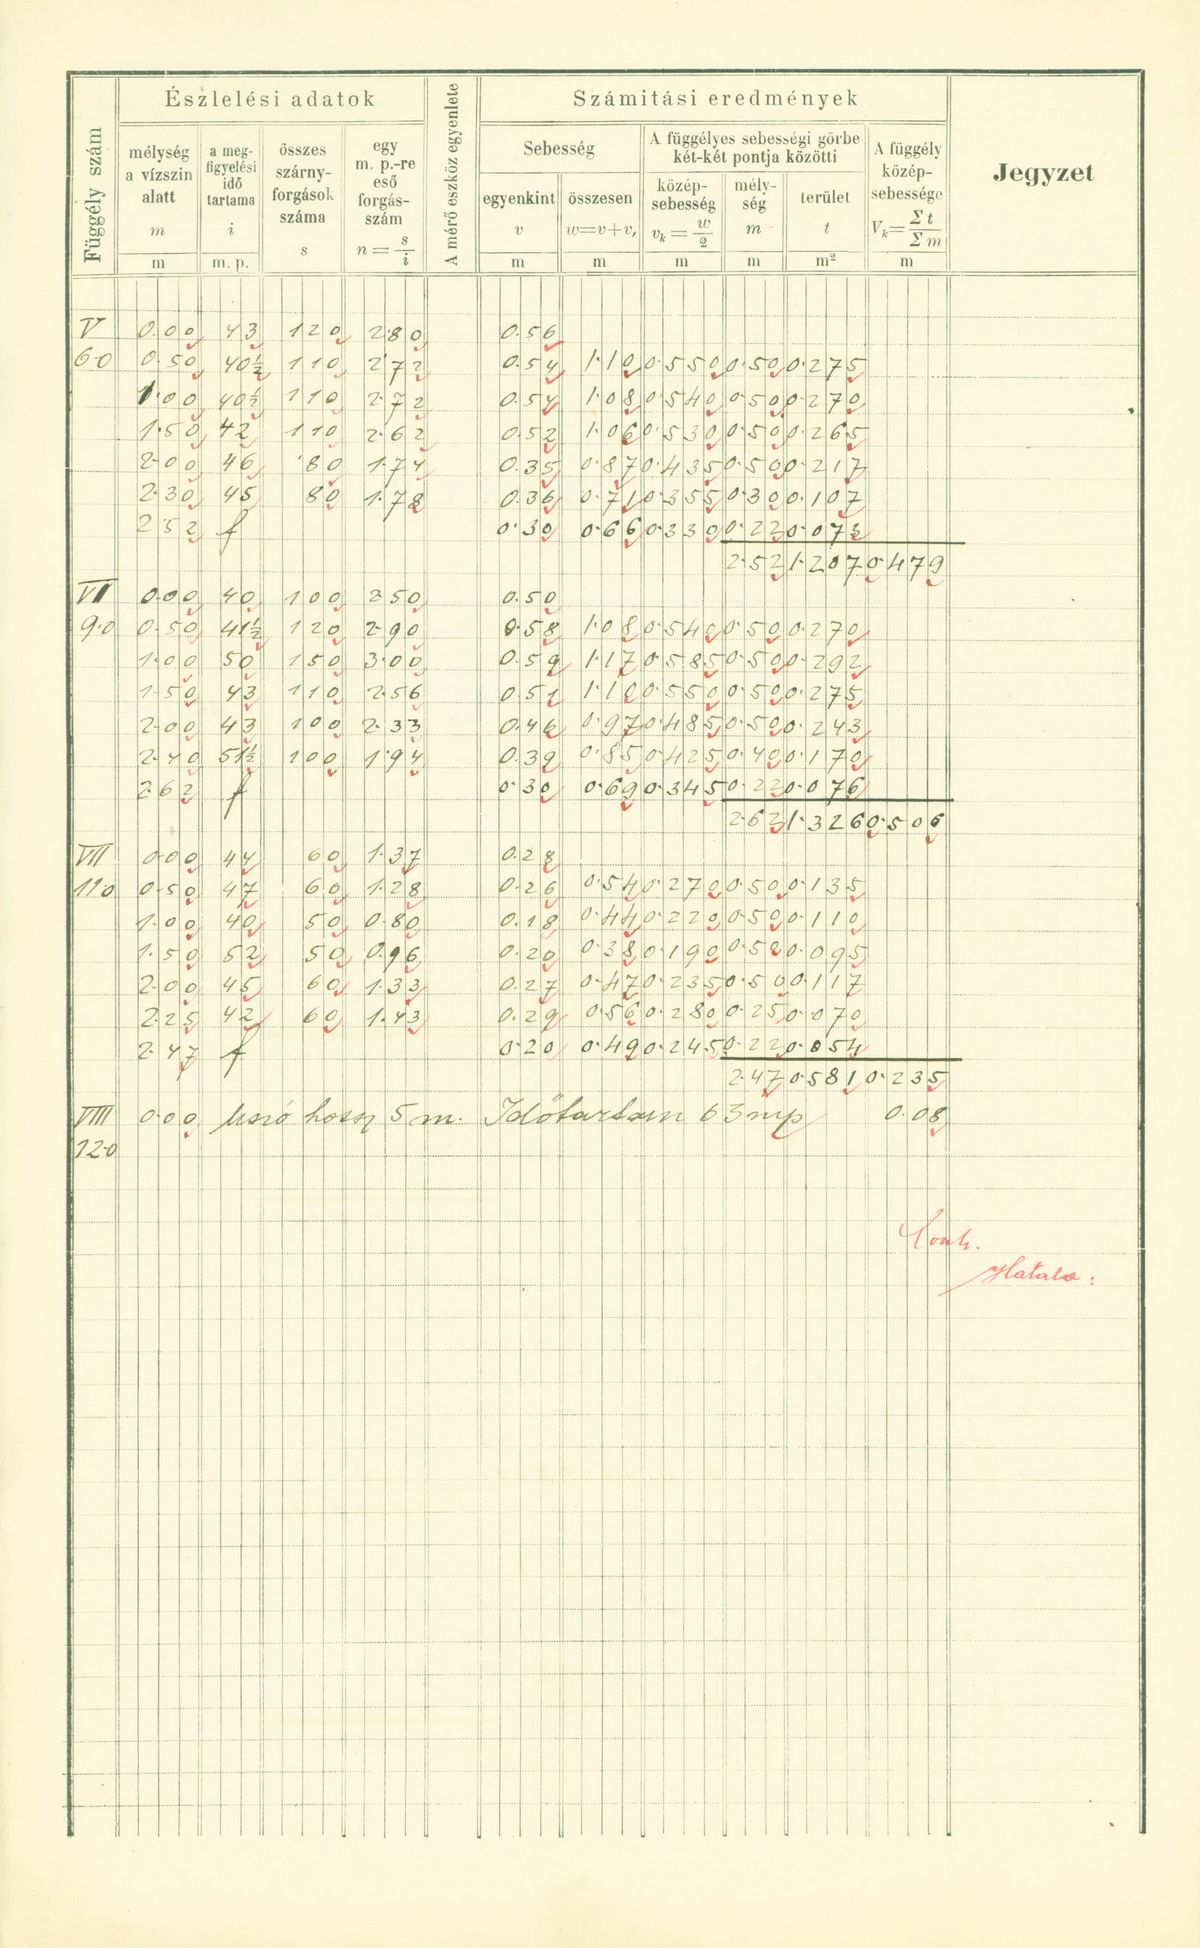 Függély szám
Észlelési adatok
mélység a vízszin alatt m
a meg-figyelési idő tartama i
összes szárny-forgások száma s
egy m. p.-re eső forgás-szám n = s/i
A mérő eszköz egyenlete
Számitási eredmények
Sebesség
egyenkint v
összesen w=v+v,
A függélyes sebességi görbe két-két pontja közötti
közép-sebesség vk = w/2
mély-ség m
terület t
A függély közép-sebessége Vk = Σ t/Σ m
Jegyzet
m m. p. m m m m m² m
V 0.00 43 120 2.80 0.56
6.0 0.50 40½ 110 2.72 0.54 1.10 0.550 0.50 0.275
1.00 40½ 110 2.72 0.54 1.08 0.540 0.50 0.270
1.50 42 110 2.62 0.52 1.06 0.530 0.50 0.265
2.00 46 80 1.74 0.35 0.87 0.435 0.50 0.217
2.30 45 80 1.78 0.36 0.71 0.355 0.30 0.107
2.52 f 0.30 0.66 0.330 0.22 0.073
2.52 1.207 0.479
VI 0.00 40 100 2.50 0.50
9.0 0.50 41½ 120 2.90 0.58 1.08 0.540 0.50 0.270
1.00 50 150 3.00 0.59 1.17 0.585 0.50 0.292
1.50 43 110 2.56 0.51 1.10 0.550 0.50 0.275
2.00 43 100 2.33 0.46 0.97 0.485 0.50 0.243
2.40 51½ 100 1.94 0.39 0.85 0.425 0.40 0.170
2.62 f 0.30 0.69 0.345 0.22 0.076
2.62 1.326 0.506
VII 0.00 44 60 1.37 0.28
11.0 0.50 47 60 1.28 0.26 0.54 0.270 0.50 0.135
1.00 40 50 0.80 0.18 0.44 0.220 0.50 0.110
1.50 52 50 0.96 0.20 0.38 0.190 0.50 0.095
2.00 45 60 1.33 0.27 0.47 0.235 0.50 0.117
2.25 42 60 1.43 0.29 0.56 0.280 0.25 0.070
2.47 f 0.20 0.49 0.245 0.22 0.054
2.47 0.581 0.235
VIII 0.00 Uszó hossz 5 m. Időtartam 63 mp 0.08
12.0